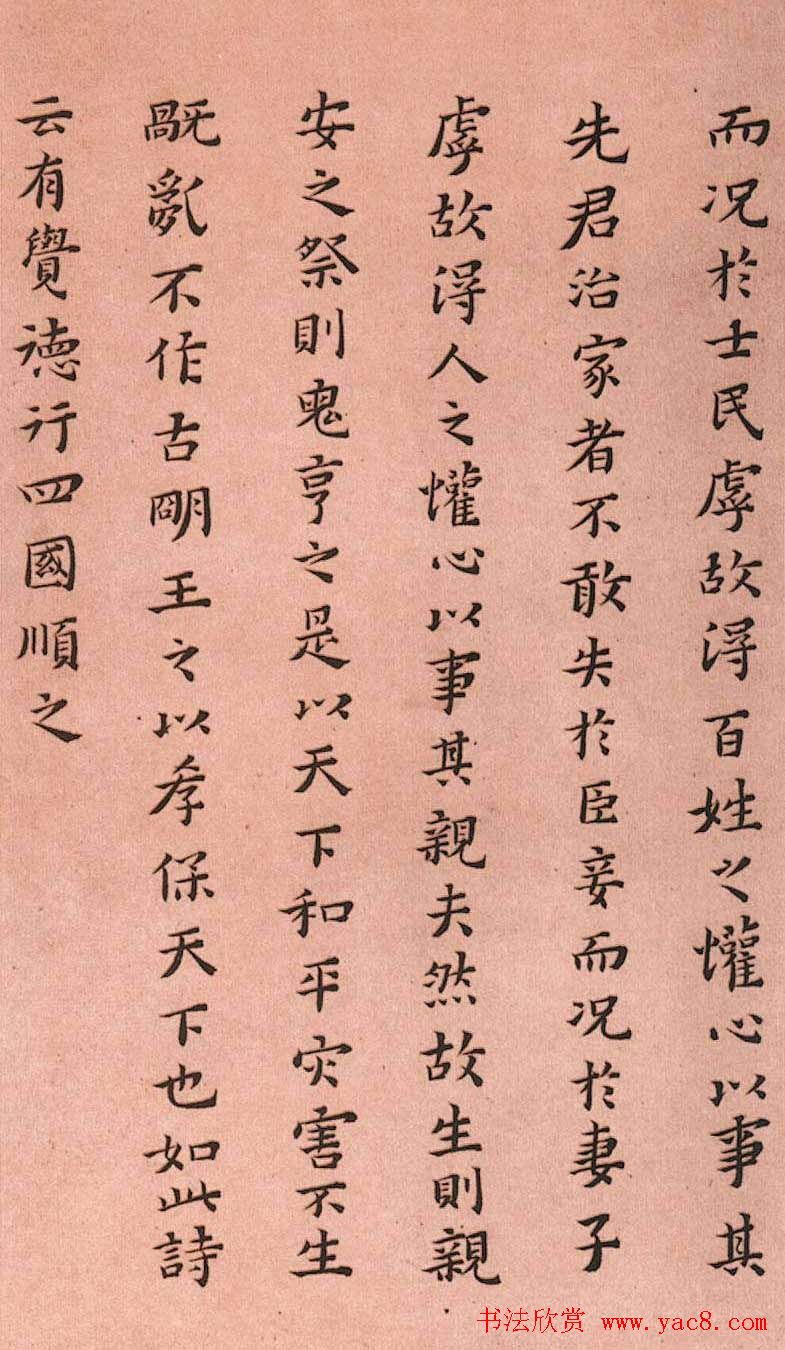 而况於士民虖故淂百姓之懽心以事其
先君治家者不敢失於臣妾而况於妻子
虖故淂人之懽心以事其親夫然故生則親
安之祭則鬼亨之是以天下和平灾害不生
旤亂不作古朙王之以孝保天下也如此詩
云有覺徳行四國順之
书法欣赏 www.yac8.com